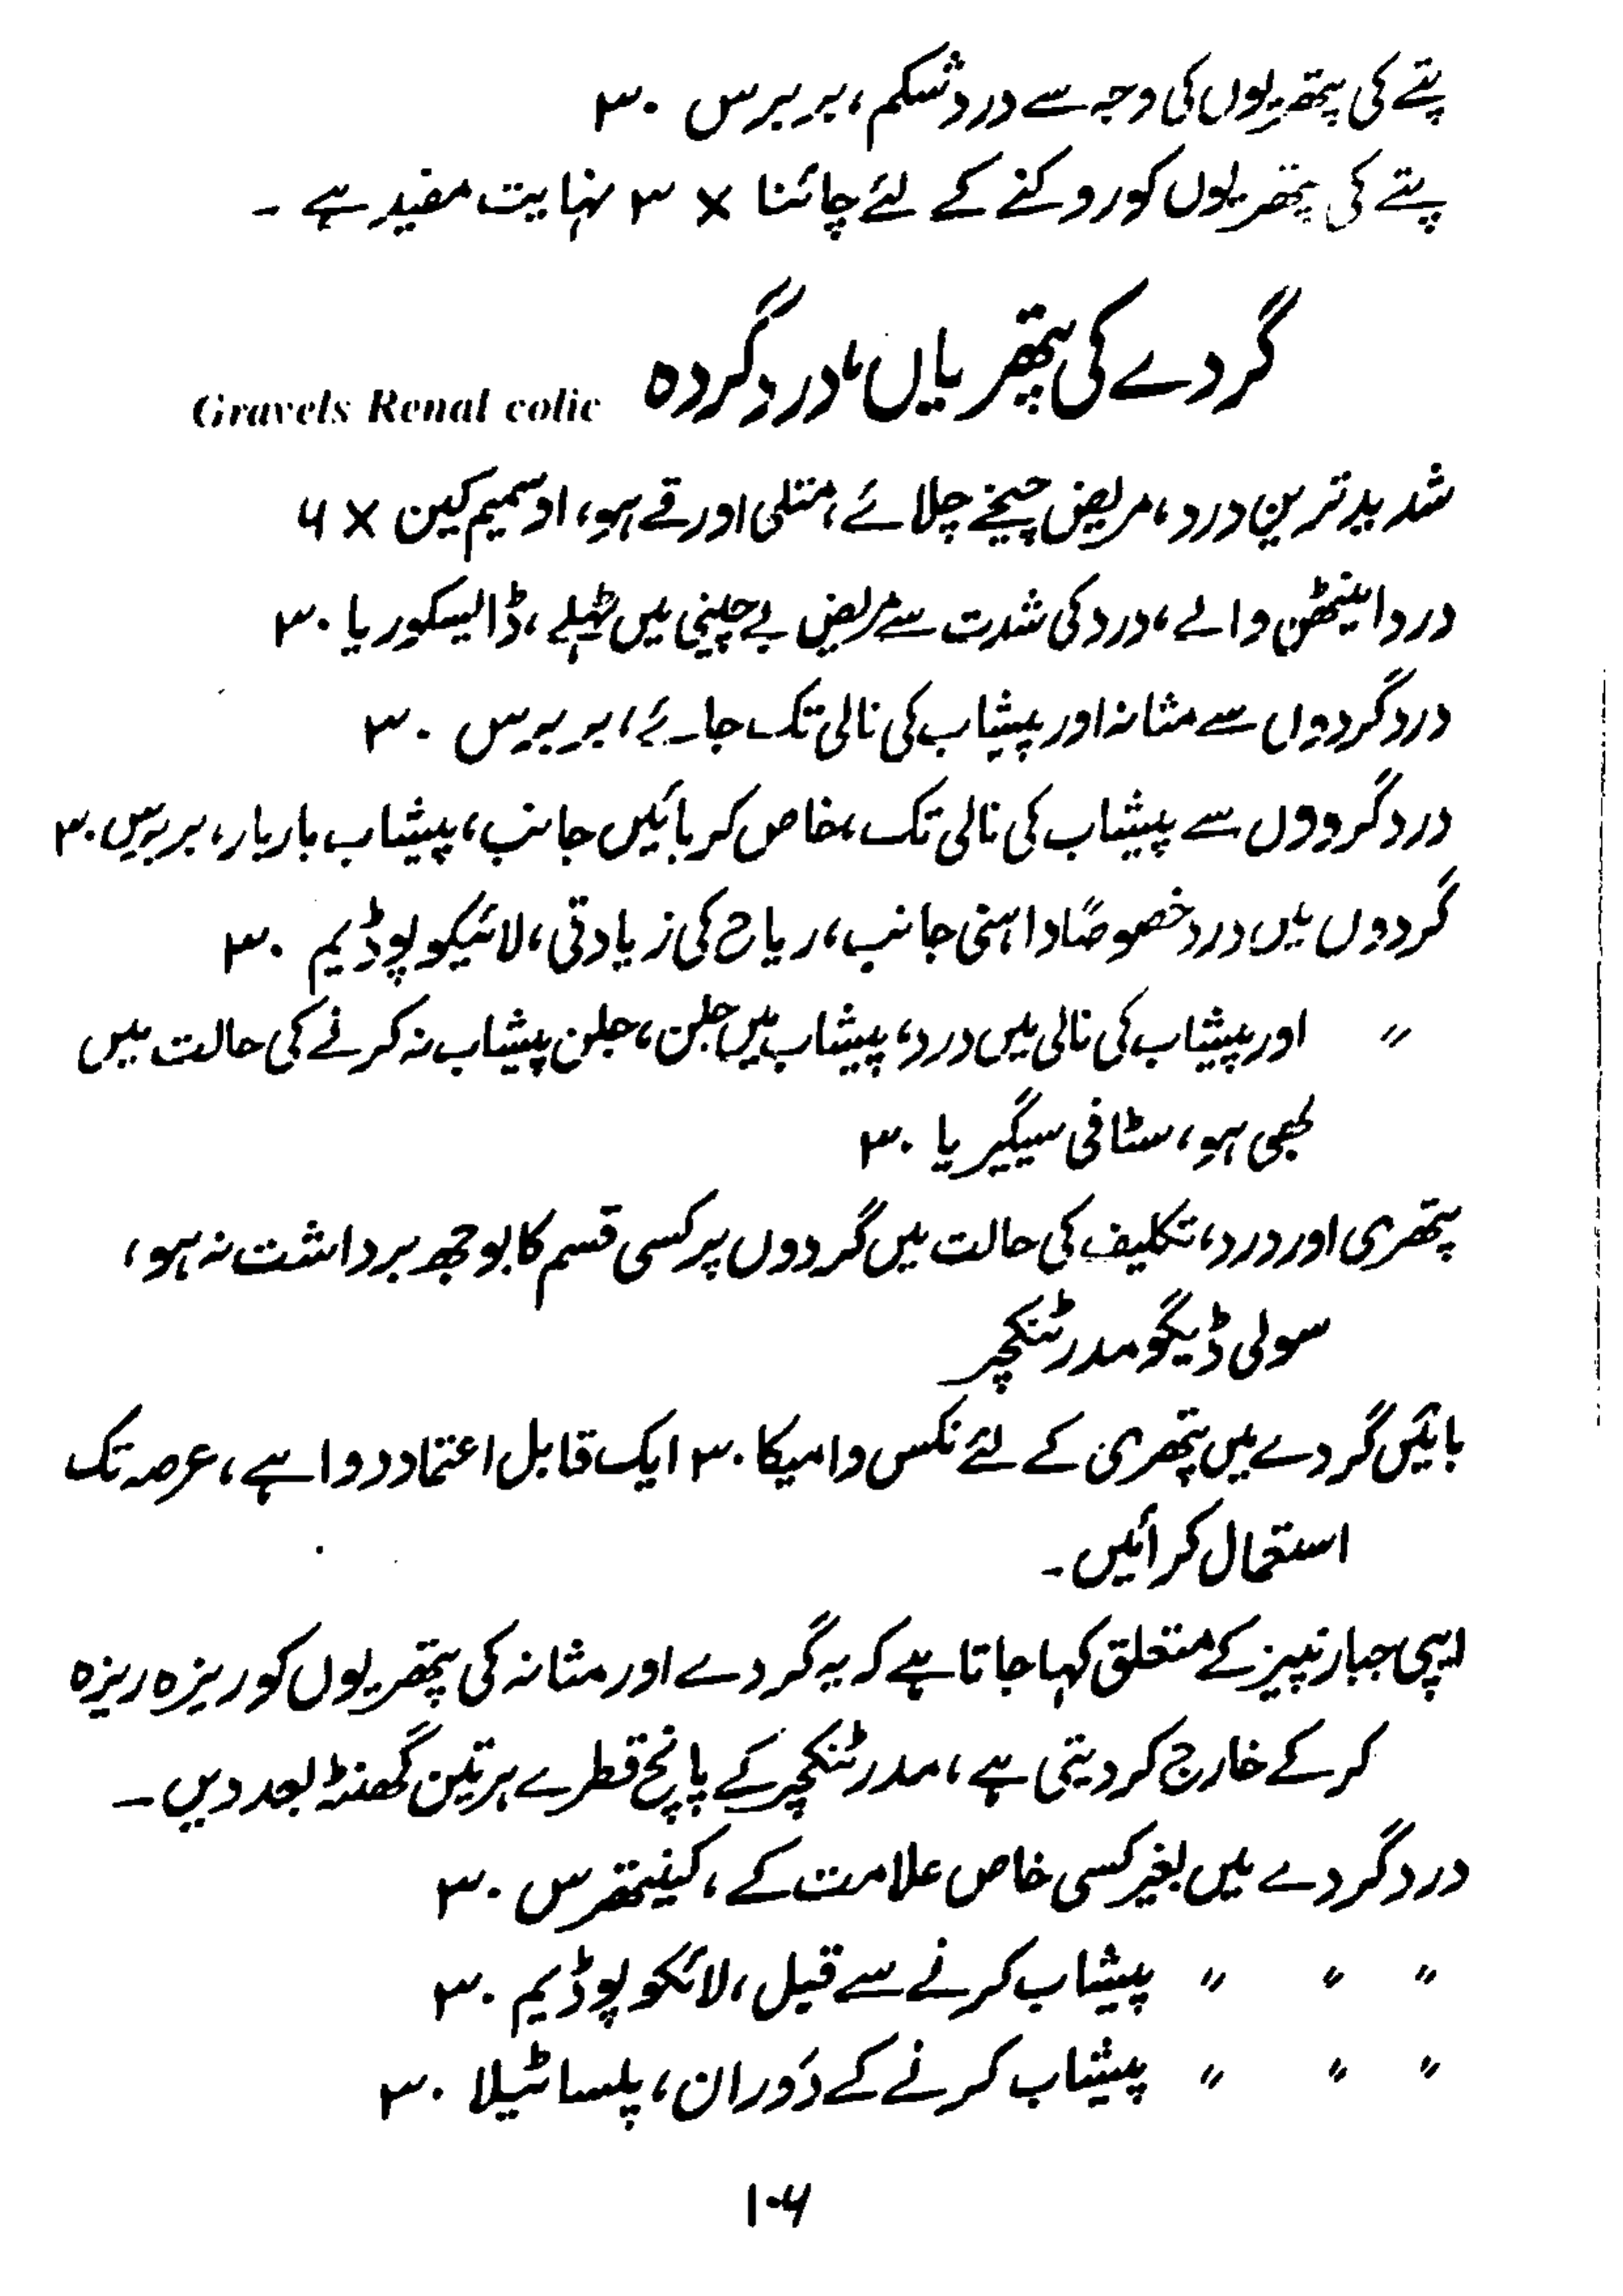 پتے کی پتھریوں کی وجہ سے درد شکم، بربرس ۳۰
پتے کی پتھریوں کو روکنے کے لئے چائنا × ۳ نہایت مفید ہے ۔
گردے کی پتھریاں، درد گردہ Gravels Renal colic
شدید ترین درد، مریض چیخے چلائے، متلی اور قے ہو، اوسمیم کین × ۶
درد اینٹھن والے، درد کی شدت سے مریض بے چینی میں ٹہلے، ڈائیسکوریا ۳۰
درد گردوں سے مثانہ اور پیشاب کی نالی تک جائے، بربرس ۳۰
درد گردوں سے پیشاب کی نالی تک، خاص کر بائیں جانب، پیشاب بار بار، بربرس ۳۰
گردوں میں درد خصوصاً داہنی جانب، ریاح کی زیادتی، لائیکوپوڈیم ۳۰
〃 اور پیشاب کی نالی میں درد، پیشاب میں جلن، جلن پیشاب نہ کرنے کی حالت میں
بھی ہو، سٹافی سیگیریا ۳۰
پتھری اور درد، تکلیف کی حالت میں گردوں پر کسی قسم کا بوجھ برداشت نہ ہو،
سولی ڈیگو مدر ٹنکچر
بائیں گردے میں پتھری کے لئے نکس وامیکا ۳۰ ایک قابل اعتماد دوا ہے، عرصہ تک
استعمال کرائیں ۔
اپی جیا رپینز کے متعلق کہا جاتا ہے کہ یہ گردے اور مثانہ کی پتھریوں کو ریزہ ریزہ
کر کے خارج کر دیتی ہے، مدر ٹنکچر کے پانچ قطرے ہر تین گھنٹہ بعد دیں ۔
درد گردے میں بغیر کسی خاص علامت کے، کینتھرس ۳۰
〃 〃 〃 پیشاب کرنے سے قبل، لائکوپوڈیم ۳۰
〃 〃 〃 پیشاب کرنے کے دَوران، پلساٹیلا ۳۰
۱۰۶